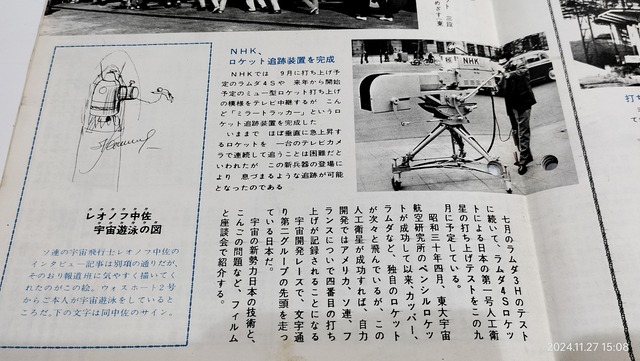 NHK、
ロケット追跡装置を完成
NHKでは　9月に打ち上げ予
定のラムダ4Sや　来年から開始
予定のミュー型ロケット打ち上げ
の模様をテレビ中継するが　こん
ど「ミラートラッカー」というロ
ケット追跡装置を完成した
いままで　ほぼ垂直に急上昇す
るロケットを　一台のテレビカメ
ラで連続して追うことは困難だと
いわれたが　この新兵器の登場に
より　息づまるような追跡が可能
となったのである
NHK
レオノフ中佐
宇宙遊泳の図
ソ連の宇宙飛行士レオノフ中佐の
インタビュー記事は別項の通りだが、
そのおり報道班に気やすく描いてく
れたのがこの絵。ウォスホート2号
からご本人が宇宙遊泳をしていると
ころだ。下の文字は同中佐のサイン。
七月のラムダ3Hのテスト
に続いて、ラムダ4Sロケッ
トによる日本の第一号人工衛
星の打ち上げテストをこの九
月に予定している。
昭和三十年四月、東大宇宙
航空研究所のペンシルロケッ
トが成功して以来、カッパー、
ラムダなど、独自のロケット
が次々と飛んでいるが、この
人工衛星が成功すれば、自力
開発ではアメリカ、ソ連、フ
ランスについで四番目の打ち
上げが記録されることになる
宇宙開発レースで、文字通
り第二グループの先頭を走っ
ている日本だ。
宇宙の新勢力日本の技術と、
こんごの問題など、フィルム
と座談会で紹介する。
2024.11.27 15:08